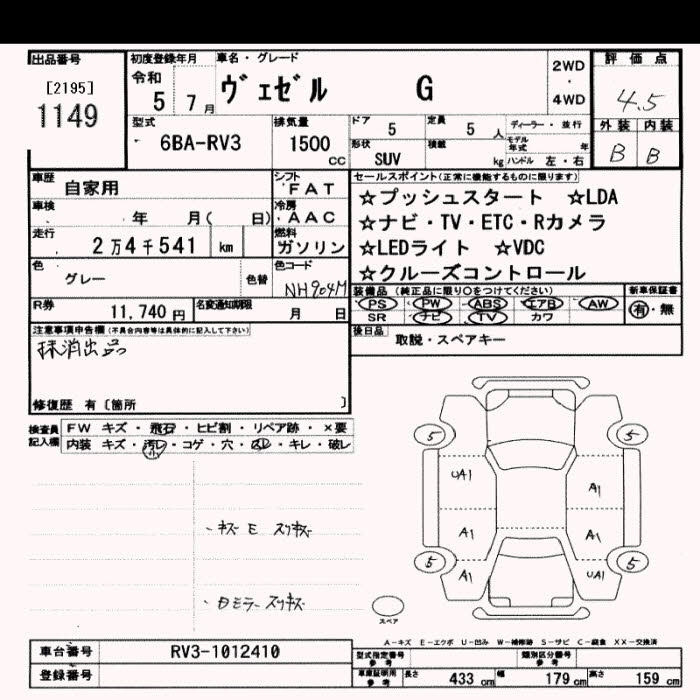 出品番号
[2195]
1149
初度登録年月
令和
5 7月
車名・グレード
ヴェゼル G
2WD
・
4WD
評価点
4.5
外装 内装
B B
型式
6BA-RV3
排気量
1500
cc
ドア 5
定員 5 人
ディーラー・並行
形状 SUV
積載 kg
モデル年式 年
ハンドル 左・右
車歴 自家用
シフト FAT
車検 年 月( 日)
冷房 AAC
走行 2万4千541 km
燃料 ガソリン
色 グレー 色替
色コード NH904M
R券 11,740円
名変通知期限 月 日
セールスポイント(正常に機能するものに限ります)
☆プッシュスタート ☆LDA
☆ナビ・TV・ETC・Rカメラ
☆LEDライト ☆VDC
☆クルーズコントロール
装備品 (純正品に限り○をつけてください)
PS PW ABS エアB AW
SR ナビ TV カワ
新車保証書
有・無
後日品 取説・スペアキー
注意事項申告欄(不具合内容等は具体的に記入して下さい)
抹消出品
修復歴 有〔箇所 〕
検査員記入欄
FW キズ・飛石・ヒビ割・リペア跡・×要
内装 キズ・汚レ・コゲ・穴・スレ・キレ・破レ
・ホズE スリキズ
・Dミラー スリキズ
5 5
UA1 A1
A1 A1
5 5
A1 UA1
スペア
A-キズ E-エクボ U-凹み W-補修跡 S-サビ C-腐食 XX-交換済
車台番号 RV3-1012410
登録番号
型式指定番号 参考
類別区分番号 参考
車庫証明用 参考
長さ 433 cm 幅 179 cm 高さ 159 cm